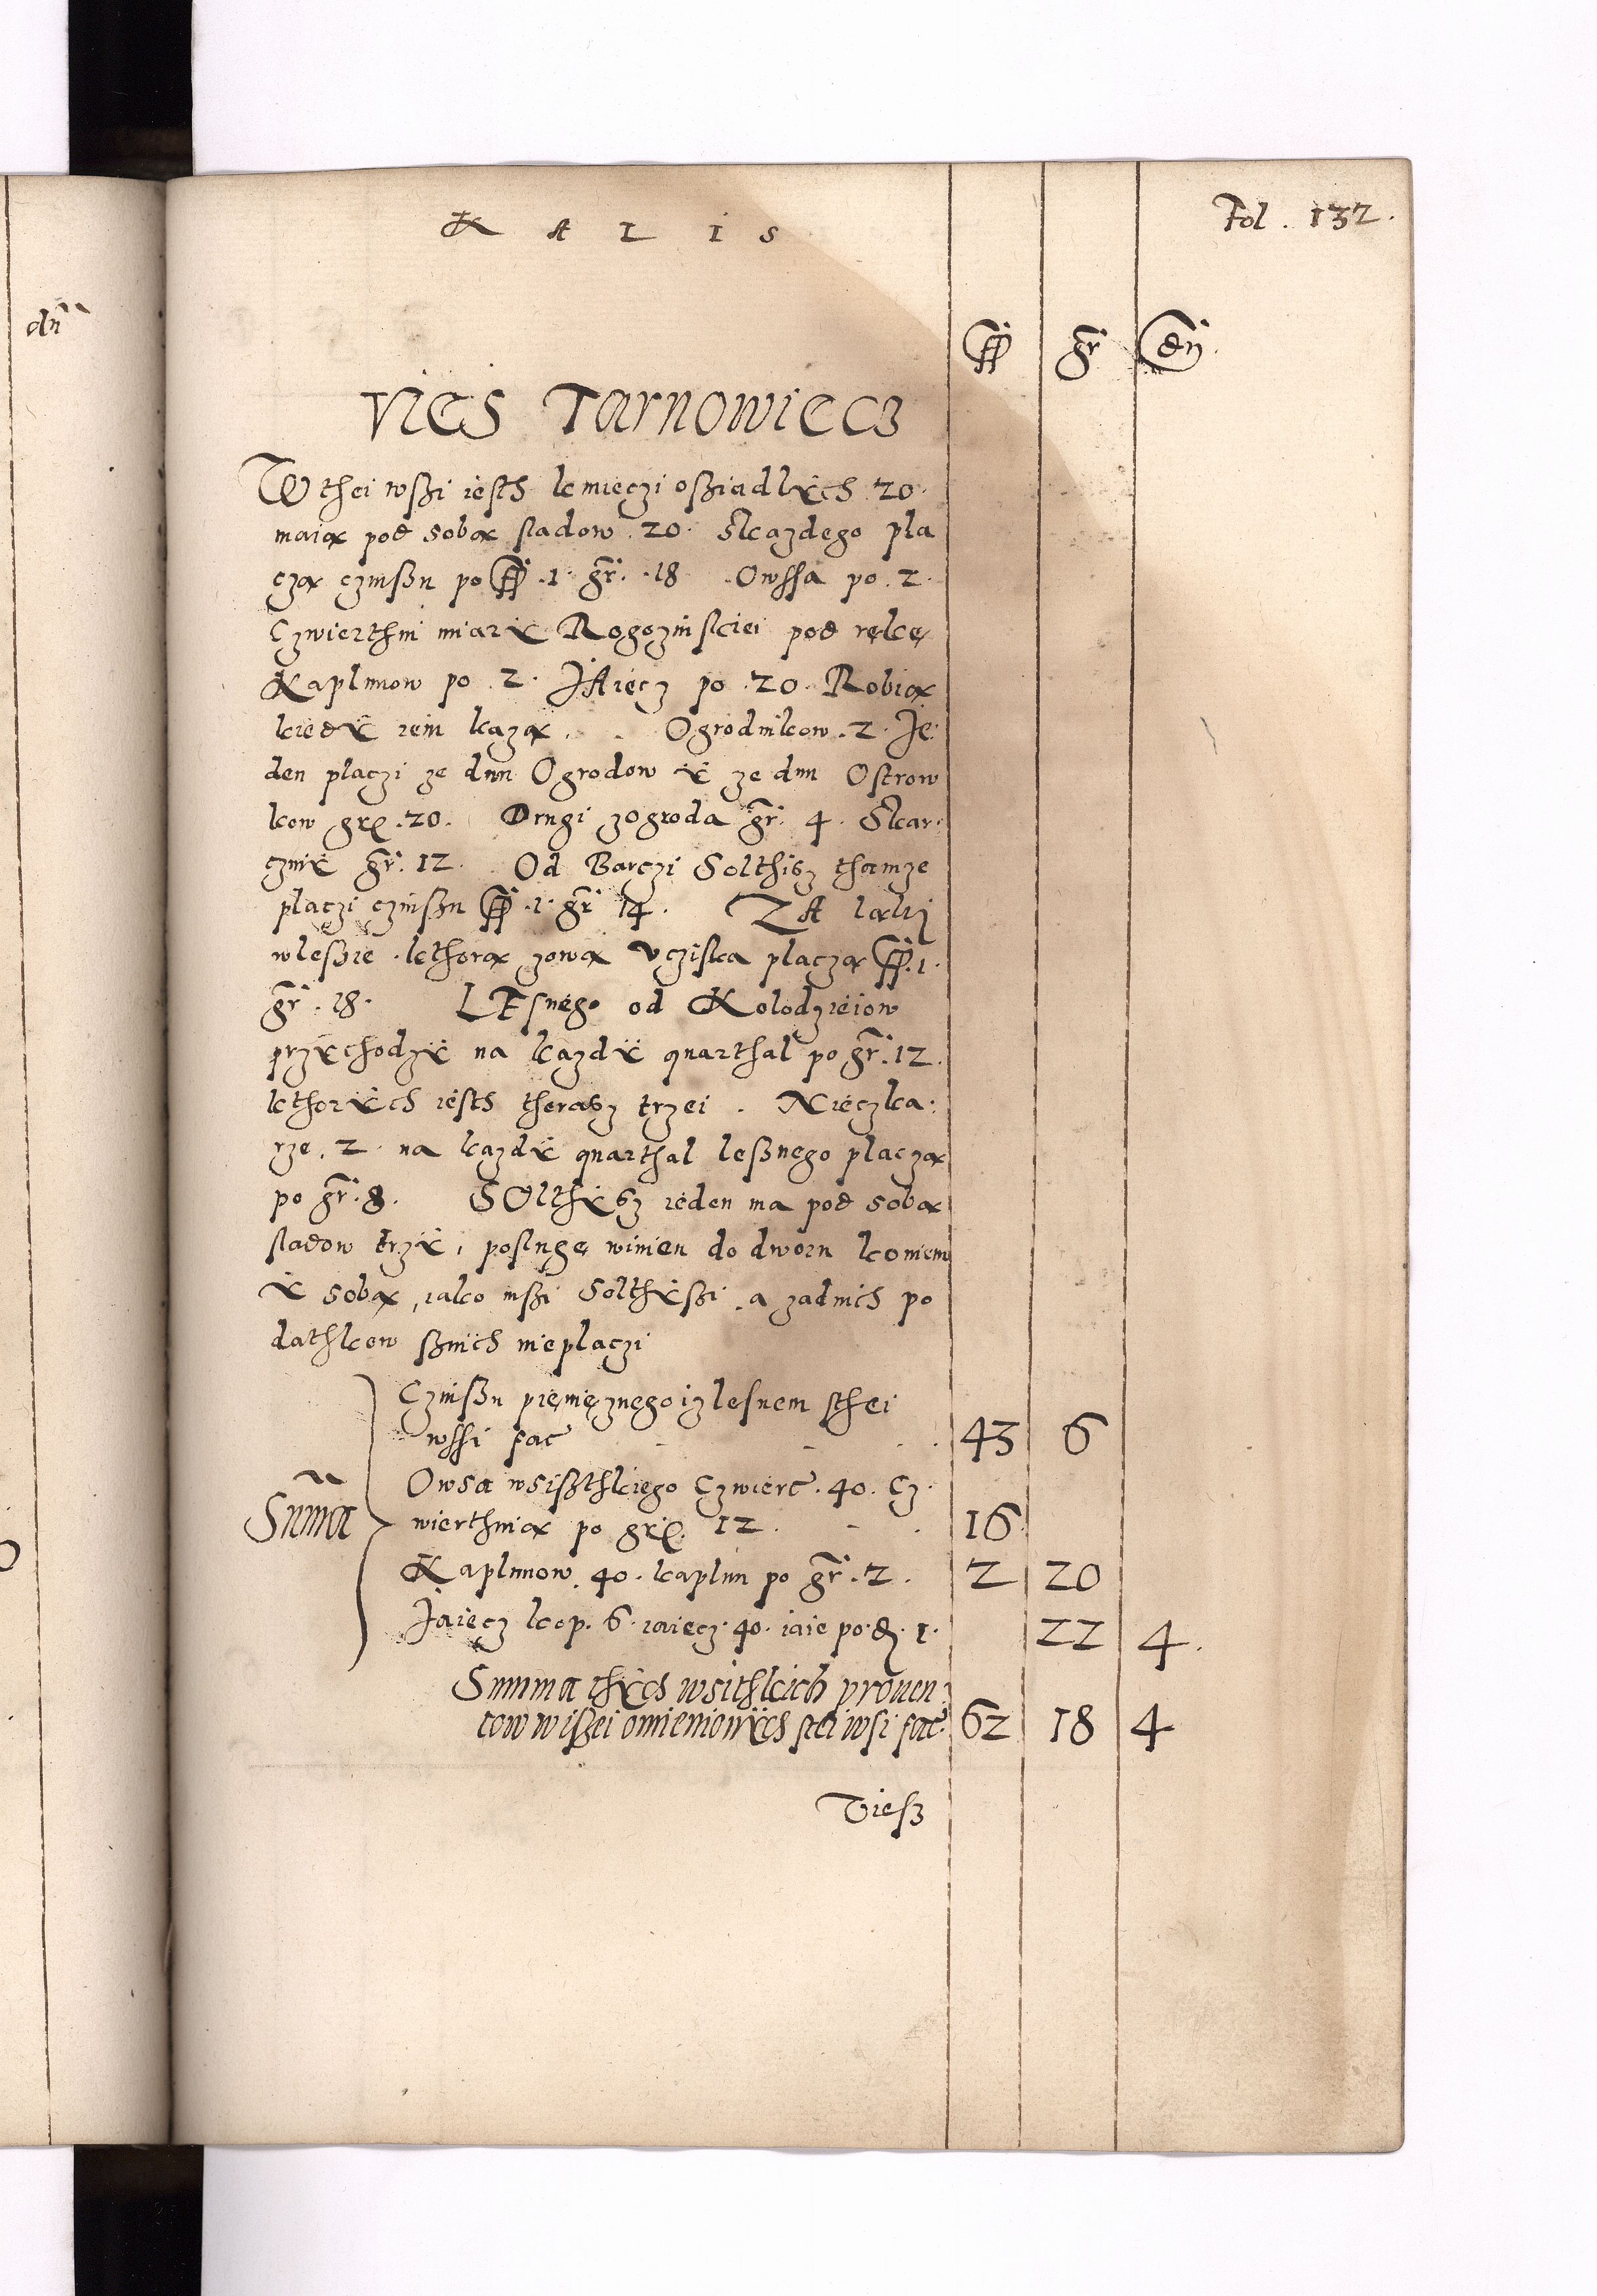 dn̄
K A L I S
Fol. 132.
ff gr̄ dn̄.
VIES Tarnowiecz
W thei wßi iesth kmieczi oßiadlÿch 20.
maią pod sobą sladow 20. Skazdego pla
czą czinßu po ff .1. gr̄. 18 Owssa po .2.
Czwierthni miarÿ Rogozinskiei pod rękę
Kaplunow po .2. JAiecz po .20. Robią
kiedÿ iem kazą. . Ogrodnikow .2. Je:
den placzi ze dnu Ogrodow ÿ ze dnu Ostrow
kow gr. 20. Drugi zogroda gr̄. 4. Skar:
cznÿ gr̄. 12. Od Barczi Solthisz thamze
placzi czinßu ff .1. gr̄ 14. ZA łąkij
wleßie kthorą zową Vcziska placzą ff .1.
gr̄. 18. LEsnego od Kolodzieiow
przÿchodzÿ na kazdÿ quarthal po gr̄. 12.
kthorÿch iesth therasz trzei . Nieczka:
rze .2. na kazdÿ quarthal leßnego placzą
po gr̄. 8. SOlthÿsz ieden ma pod sobą
sladow trzÿ, poslugę winien do dworu koniem
ÿ sobą, iako inßi Solthÿßi, a zadnich po
dathkow ßnich nieplaczi
Czinßu pienięznego izlesnem sthei
wssi fac 43 6
Owsa wsißthkiego Czwiert. 40. Cz.
Sum̄a wierthnią po gr. 12. 16
Kaplunow. 40. kaplun po gr̄. 2. 2 20
Jaiecz kop. 6. iaiecz. 40. iaie po d. 1. 22 4.
Summa thÿch wsithkich prouen:
tow wißei omienionÿch stei wsi fac. 62 18 4
Vießz